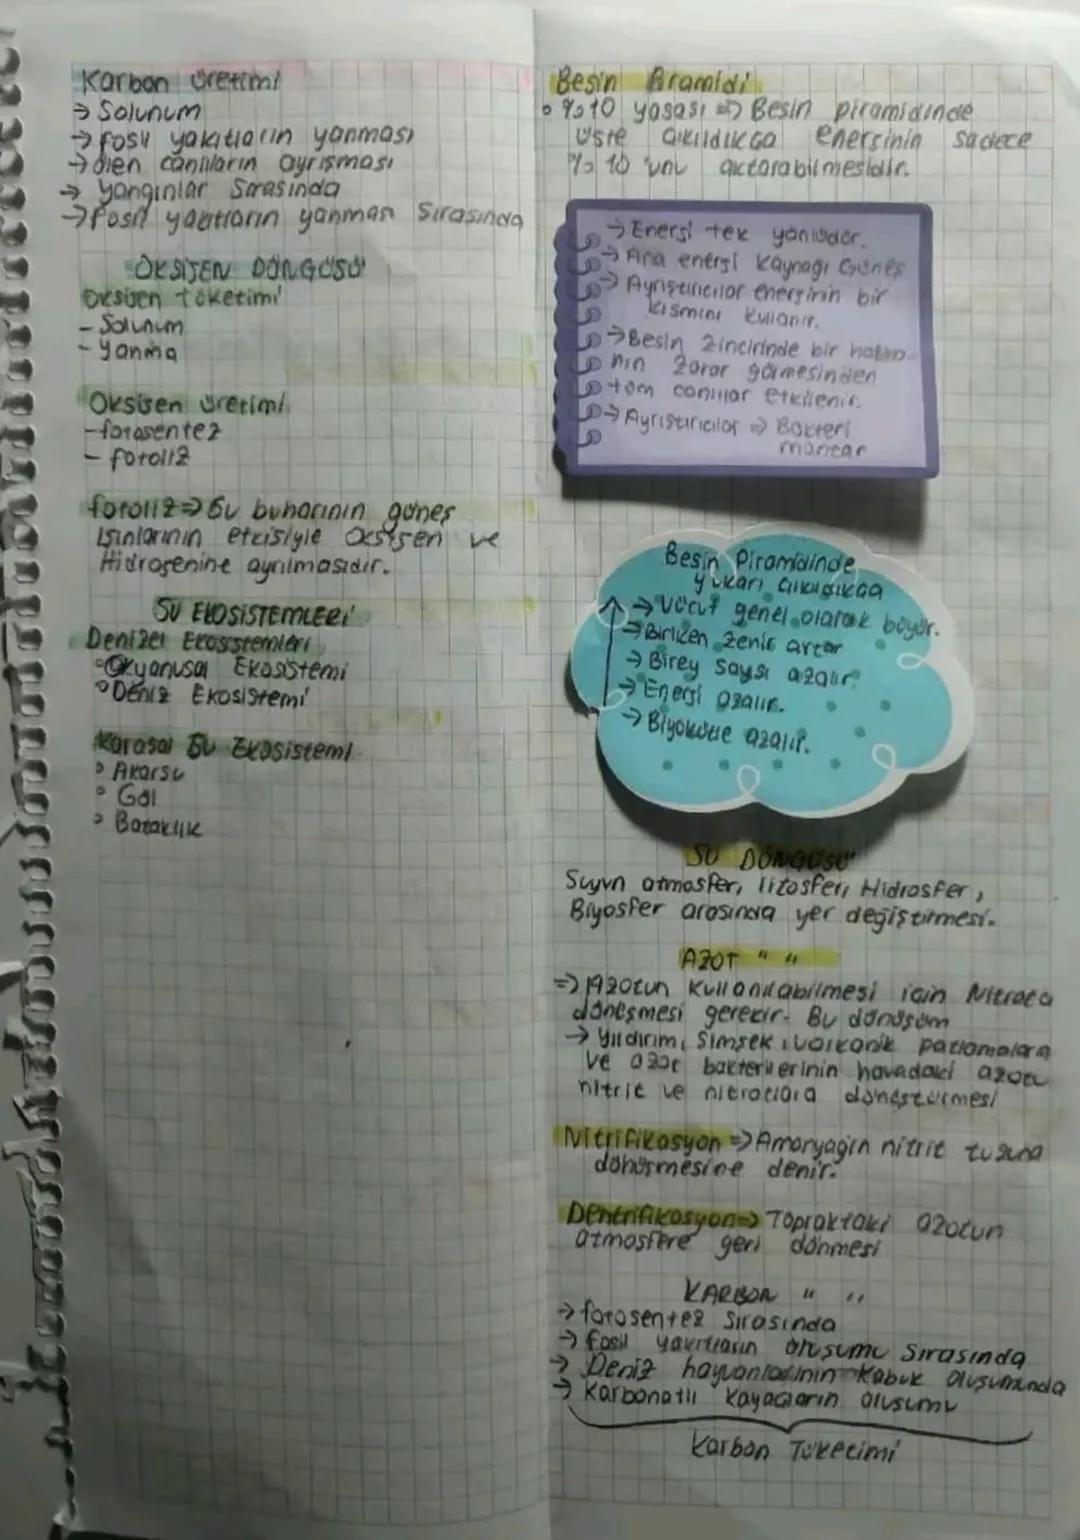 Karbon üretimi
→ Solunum
→ fosil yakıtların yanması
→ ölen canlıların ayrışması
→ yangınlar sırasında
→ fosil yakıtların yanması sırasında
OKSİJEN DÖNGÜSÜ
Oksijen tüketimi
- Solunum
- yanma
Oksijen üretimi
- fotosentez
- fotoliz
fotoliz => Su buharının güneş
ışınlarının etkisiyle oksijen ve
Hidrojenine ayrılmasıdır.
SU EKOSİSTEMLERİ
Denizel Ekosistemleri
° Okyanusal Ekosistemi
° Deniz Ekosistemi
Karasal Su Ekosistemi
° Akarsu
° Göl
° Bataklık
Besin Piramidi
° %10 yasası => Besin piramidinde
üste çıkıldıkça enerjinin sadece
% 10 unu aktarabilmesidir.
→ Enerji tek yönlüdür.
→ Ana enerji kaynağı Güneş
→ Ayrıştırıcılar enerjinin bir
kısmını kullanır.
→ Besin zincirinde bir halka-
nın zarar görmesinden
tüm canlılar etkilenir.
→ Ayrıştırıcılar => Bakteri
mantar
Besin Piramidinde
yukarı çıkıldıkça
→ Vücut genel olarak büyür.
→ Biriken zehir artar
→ Birey sayısı azalır.
→ Enerji azalır.
→ Biyokütle azalır.
SU DÖNGÜSÜ
Suyun atmosfer, litosfer, Hidrosfer,
Biyosfer arasında yer değiştirmesi.
AZOT " "
=> Azotun kullanılabilmesi için Nitrata
dönüşmesi gerekir. Bu dönüşüm
→ yıldırım, Şimşek, volkanik patlamalara
ve azot bakterilerinin havadaki azotu
nitrit ve nitratlara dönüştürmesi
Nitrifikasyon => Amonyağın nitrit tuzuna
dönüşmesine denir.
Dentrifikasyon => Topraktaki azotun
atmosfere geri dönmesi
KARBON " "
→ fotosentez sırasında
→ fosil yakıtların oluşumu sırasında
→ Deniz hayvanlarının kabuk oluşumunda
→ Karbonatlı kayaçların oluşumu
Karbon Tüketimi